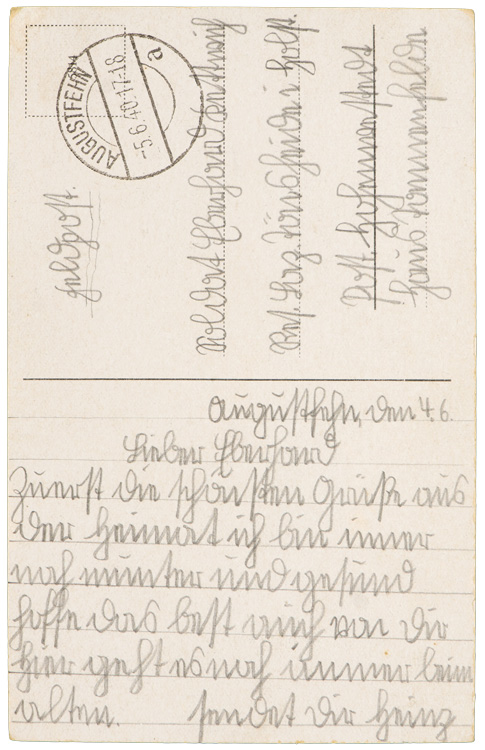 AUGUSTFEHN
-5.6.40.17-18
a
Feldpost.
Soldat Eberhard
Res. Laz. i Holst.
Post Hohenwestedt
Haus
Augustfehn, den 4.6.
Lieber Eberhard
Zuerst die schönsten Grüße aus
der Heimat ich bin imer
noch munter und gesund
hoffe das best auch von Dir
Hier geht es noch immer beim
alten. sendet Dir Heinz